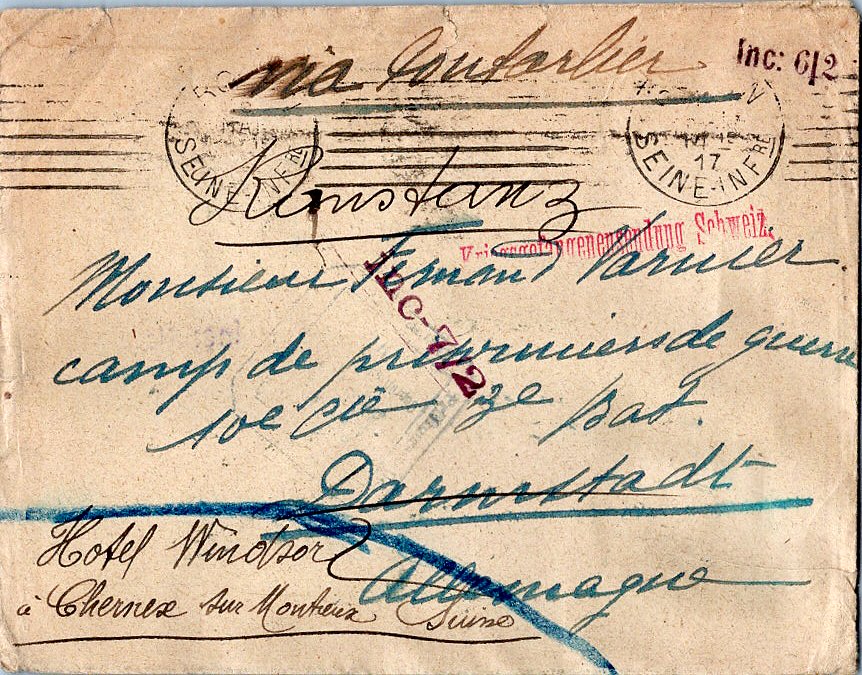 via Pontarlier
Inc: 6/2
SEINE-INFRE
17
SEINE-INFRE
Konstanz
Kriegsgefangenensendung Schweiz.
Monsieur Fernand Varnier
Inc-7/2
camp de prisonniers de guerre
10e cie 2e Bat.
Darmstadt
Allemagne
Hotel Windsor
à Chernex sur Montreux Suisse